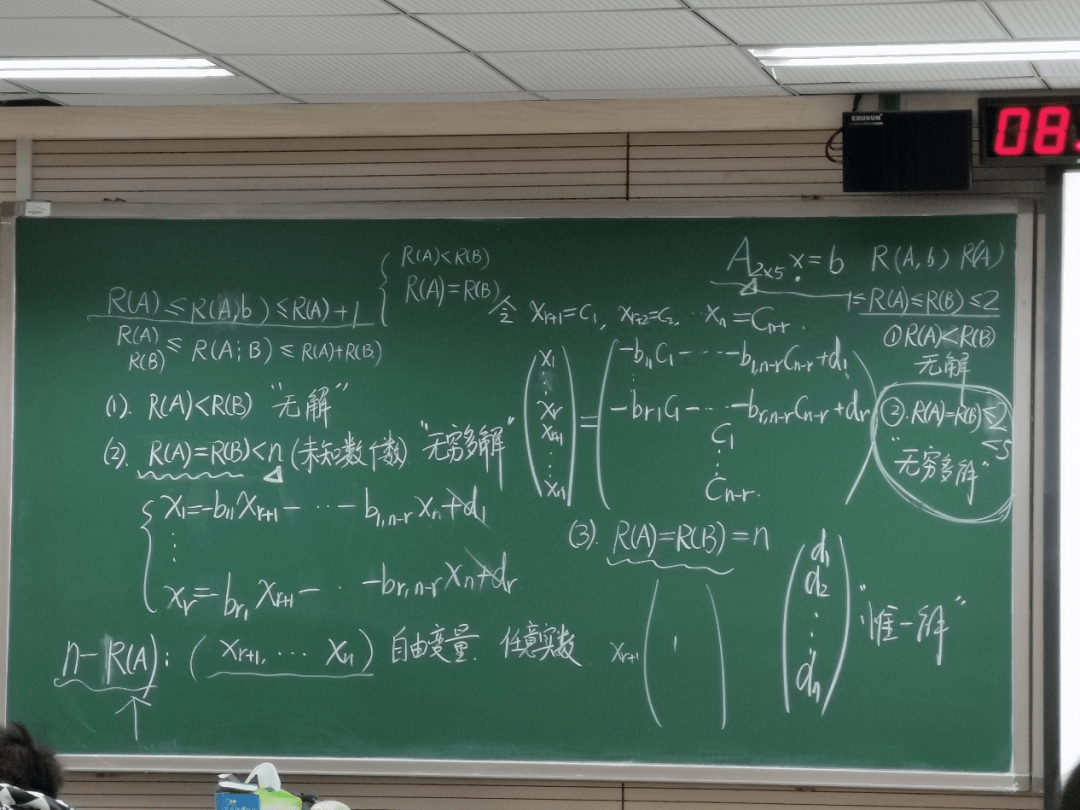 EDUSUN
08
R(A) ≤ R(A,b) ≤ R(A)+1
{ R(A)<R(B)
R(A)=R(B)
R(A)
R(B) ≤ R(A;B) ≤ R(A)+R(B)
(1). R(A)<R(B) "无解"
(2). R(A)=R(B)<n (未知数个数) "无穷多解"
{ x₁=-b₁₁xᵣ₊₁- ⋯ -b₁,ₙ₋ᵣxₙ+d₁
⋮
xᵣ=-bᵣ₁xᵣ₊₁- ⋯ -bᵣ,ₙ₋ᵣxₙ+dᵣ
n-R(A): (xᵣ₊₁, ⋯ xₙ) 自由变量. 任意实数
令 xᵣ₊₁=C₁, xᵣ₊₂=C₂, xₙ=Cₙ₋ᵣ.
x₁
⋮
xᵣ
xᵣ₊₁
⋮
xₙ
=
-b₁₁C₁- ⋯ -b₁,ₙ₋ᵣCₙ₋ᵣ+d₁
⋮
-bᵣ₁C₁- ⋯ -bᵣ,ₙ₋ᵣCₙ₋ᵣ+dᵣ
C₁
⋮
Cₙ₋ᵣ.
(3). R(A)=R(B)=n
xᵣ₊₁
d₁
d₂
⋮
dₙ
"惟一解"
A₂ₓ₅ x=b R(A,b) R(A)
1≤R(A)≤R(B)≤2
① R(A)<R(B)
无解
②. R(A)=R(B)≤2
<5
"无穷多解"